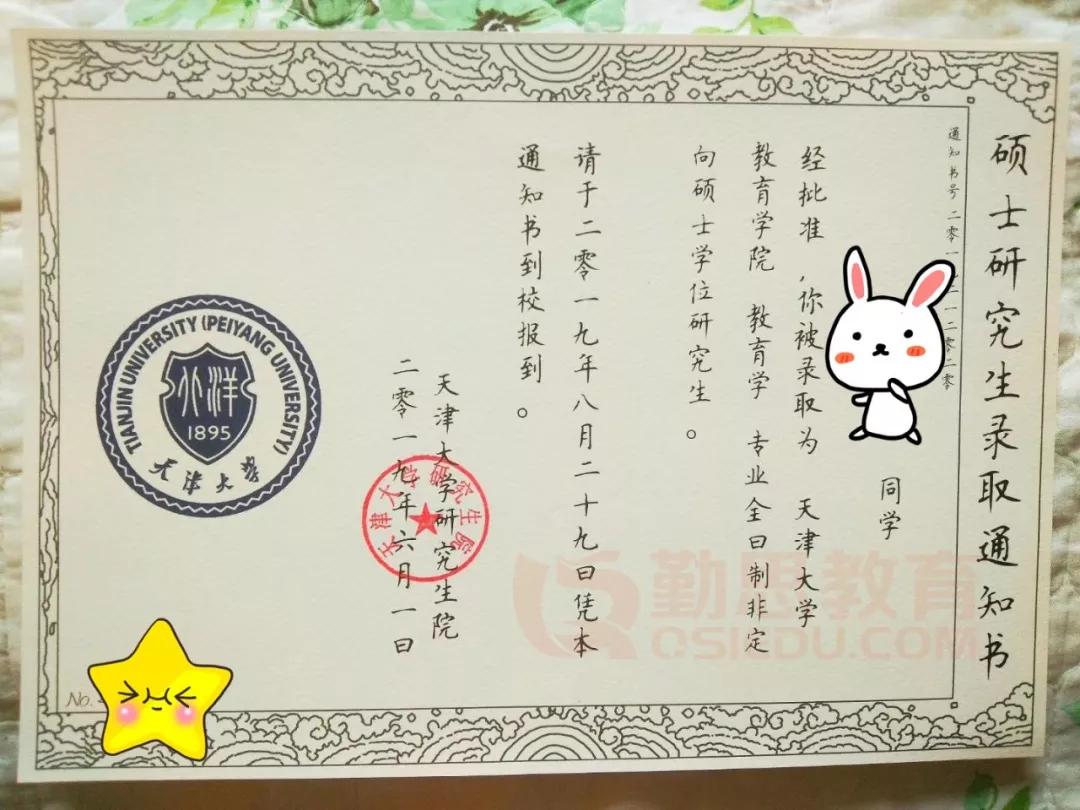 硕士研究生录取通知书
通知书号二零一
一二零二零
同学
经批准,你被录取为 天津大学
教育学院 教育学 专业全日制非定
向硕士学位研究生。
请于二零一九年八月二十九日凭本
通知书到校报到。
天津大学研究生院
二零一九年六月一日
天津大学研究生院
TIANJIN UNIVERSITY (PEIYANG UNIVERSITY)
北洋
1895
天津大学
No.
勤思教育
QSIEDU.COM